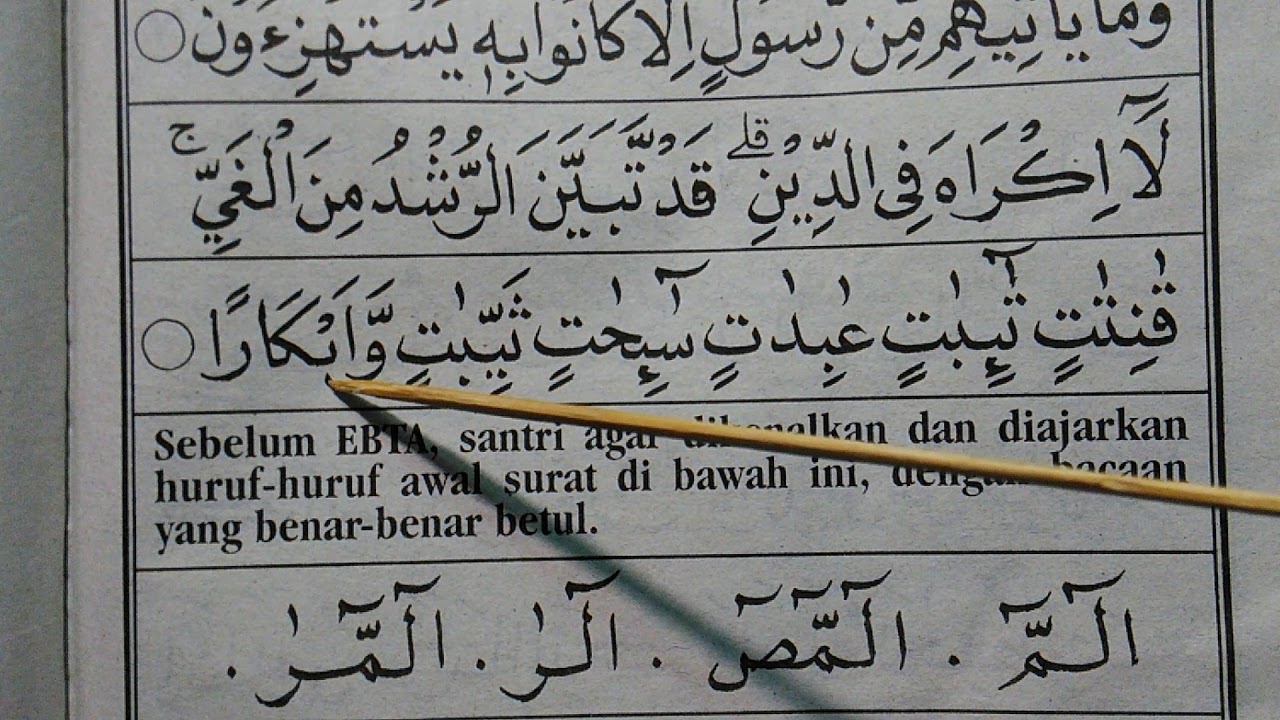 وَمَا يَأْتِيهِمْ مِّنْ رَّسُولٍ اِلَّا كَانُوْا بِهٖ يَسْتَهْزِءُوْنَ ○
لَآ اِكْرَاهَ فِى الدِّيْنِ ۗ قَدْ تَّبَيَّنَ الرُّشْدُ مِنَ الْغَيِّ ۚ
قٰنِتٰتٍ تٰٓئِبٰتٍ عٰبِدٰتٍ سٰٓئِحٰتٍ ثَيِّبٰتٍ وَّاَبْكَارًا ○
Sebelum EBTA, santri agar dikenalkan dan diajarkan
huruf-huruf awal surat di bawah ini, dengan bacaan
yang benar-benar betul.
الٓمّٓ . الٓمّٓصٓ . الٓرٰ . الٓمّٓرٰ .